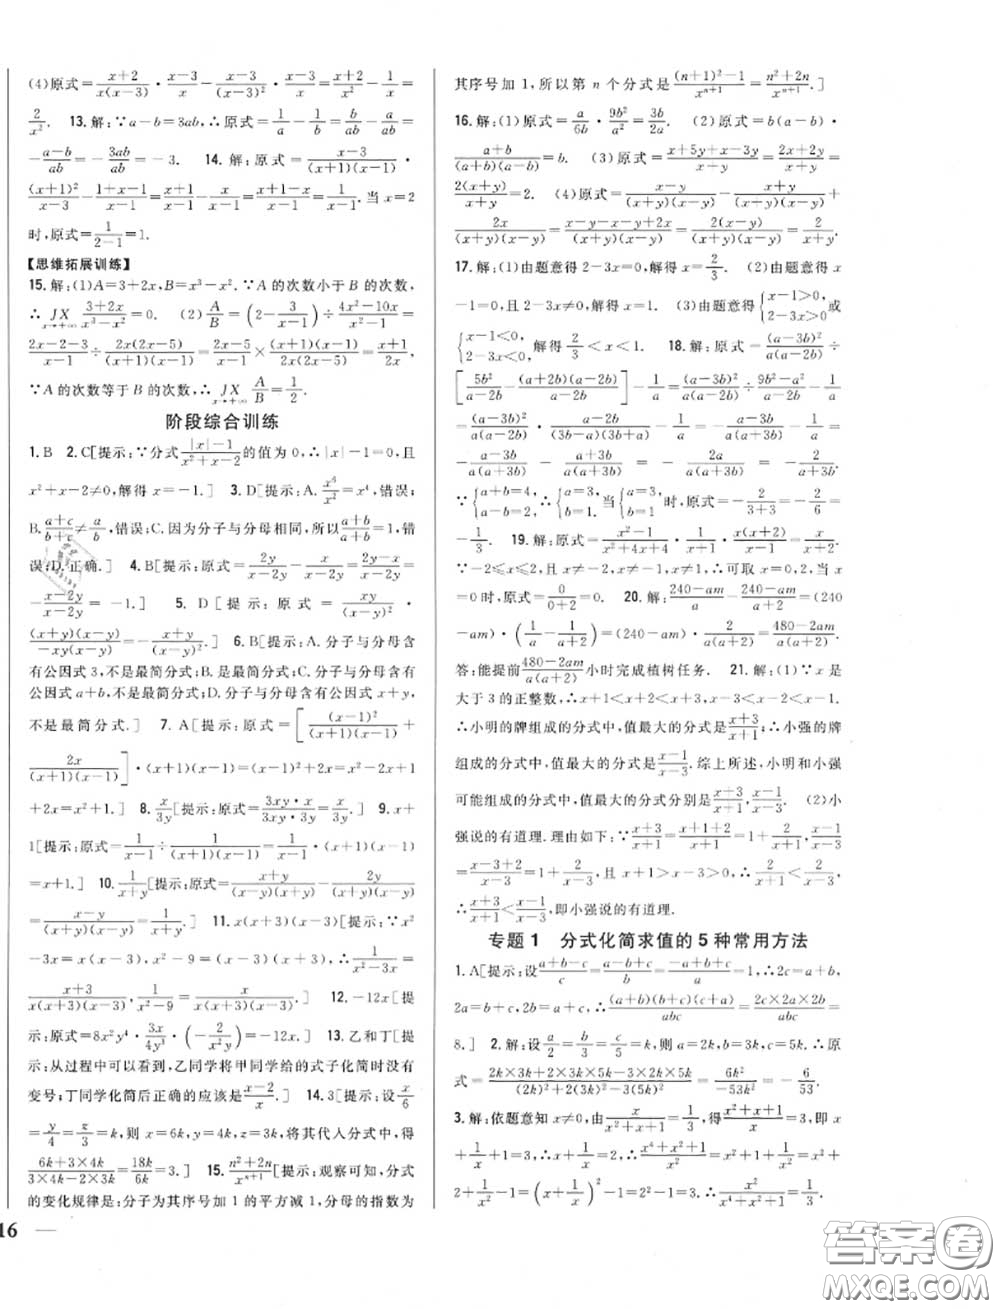 (4)原式=\frac{x+2}{x(x-3)}·\frac{x-3}{x}-\frac{x-3}{(x-3)^2}·\frac{x-3}{x}=\frac{x+2}{x^2}-\frac{1}{x}=
\frac{2}{x^2}. 13.解:∵a-b=3ab,∴原式=\frac{1}{a}-\frac{1}{b}=\frac{b}{ab}-\frac{a}{ab}=
-\frac{a-b}{ab}=-\frac{3ab}{ab}=-3. 14.解:原式=\frac{x-3}{(x+1)(x-1)}·
\frac{(x+1)^2}{x-3}-\frac{1+x-1}{x-1}=\frac{x+1}{x-1}-\frac{x}{x-1}=\frac{x+1-x}{x-1}=\frac{1}{x-1}.当x=2
时,原式=\frac{1}{2-1}=1.
【思维拓展训练】
15.解:(1)A=3+2x,B=x³-x².∵A的次数小于B的次数,
∴JX_{x→+∞}\frac{3+2x}{x³-x²}=0. (2)\frac{A}{B}=(2-\frac{3}{x-1})÷\frac{4x²-10x}{x²-1}=
\frac{2x-2-3}{x-1}÷\frac{2x(2x-5)}{(x+1)(x-1)}=\frac{2x-5}{x-1}×\frac{(x+1)(x-1)}{2x(2x-5)}=\frac{x+1}{2x},
∵A的次数等于B的次数,∴JX_{x→+∞}\frac{A}{B}=\frac{1}{2}.
阶段综合训练
1.B 2.C[提示:∵分式\frac{|x|-1}{x²+x-2}的值为0,∴|x|-1=0,且
x²+x-2≠0,解得x=-1.] 3.D[提示:A.\frac{x^6}{x^3}=x³,错误;
B.\frac{a+c}{b+c}≠\frac{a}{b},错误;C.因为分子与分母相同,所以\frac{a+x}{a+x}=1,错
误;D.正确.] 4.B[提示:原式=\frac{2y}{x-2y}-\frac{x}{x-2y}=\frac{2y-x}{x-2y}=
-\frac{x-2y}{x-2y}=-1.] 5.D[提示:原式=\frac{xy}{(x-y)²}·
\frac{(x+y)(x-y)}{-xy(x-y)}=-\frac{x+y}{(x-y)²}.] 6.B[提示:A.分子与分母含
有公因式3,不是最简分式;B.是最简分式;C.分子与分母含有
公因式a+b,不是最简分式;D.分子与分母含有公因式x+y,
不是最简分式.] 7.A[提示:原式=[\frac{(x-1)²}{(x+1)(x-1)}+
\frac{2x}{(x+1)(x-1)}]·(x+1)(x-1)=(x-1)²+2x=x²-2x+1
+2x=x²+1.] 8.\frac{x}{3y}[提示:原式=\frac{3xy·x}{3xy·3y}=\frac{x}{3y}.] 9.x+
1[提示:原式=\frac{1}{x-1}÷\frac{1}{(x+1)(x-1)}=\frac{1}{x-1}·(x+1)(x-1)
=x+1.] 10.\frac{1}{x+y}[提示:原式=\frac{x+y}{(x-y)(x+y)}-\frac{2y}{(x+y)(x-y)}
=\frac{x-y}{(x+y)(x-y)}=\frac{1}{x+y}.] 11.x(x+3)(x-3)[提示:∵x²
-3x=x(x-3),x²-9=(x-3)(x+3),∴\frac{1}{x²-3x}=
\frac{x+3}{x(x+3)(x-3)},\frac{x}{x²-9}=\frac{x²}{x(x+3)(x-3)}.] 12.-12x[提
示:原式=8x²y⁴·\frac{3x}{4y³}·(-\frac{2}{x²y})=-12x.] 13.乙和丁[提
示:从过程中可以看到,乙同学将甲同学给的式子化简时没有
变号;丁同学化简后正确的应该是\frac{x-2}{x}.] 14.3[提示:设\frac{x}{6}
=\frac{y}{4}=\frac{z}{3}=k,则x=6k,y=4k,z=3k,将其代入分式中,得
\frac{6k+3×4k}{3×4k-2×3k}=\frac{18k}{6k}=3.] 15.\frac{n²+2n}{x^{n+1}}[提示:观察可知,分式
的变化规律是:分子为其序号加1的平方减1,分母的指数为
16
其序号加1,所以第n个分式是\frac{(n+1)²-1}{x^{n+1}}=\frac{n²+2n}{x^{n+1}}.]
16.解:(1)原式=\frac{a}{6b}·\frac{9b²}{a²}=\frac{3b}{2a}. (2)原式=b(a-b)·
\frac{a+b}{(a+b)(a-b)}=b. (3)原式=\frac{x+5y+x-3y}{x+y}=\frac{2x+2y}{x+y}=
\frac{2(x+y)}{x+y}=2. (4)原式=\frac{x-y}{(x+y)(x-y)}-\frac{x+y}{(x+y)(x-y)}+
\frac{2x}{(x+y)(x-y)}=\frac{x-y-x-y+2x}{(x+y)(x-y)}=\frac{2(x-y)}{(x+y)(x-y)}=\frac{2}{x+y}.
17.解:(1)由题意得2-3x=0,解得x=\frac{2}{3}. (2)由题意得x
-1=0,且2-3x≠0,解得x=1. (3)由题意得{x-1>0, 2-3x>0或
{x-1<0, 2-3x<0,解得\frac{2}{3}<x<1. 18.解:原式=\frac{(a-3b)²}{a(a-2b)}÷
[\frac{5b²}{a-2b}-\frac{(a+2b)(a-2b)}{a-2b}]-\frac{1}{a}=\frac{(a-3b)²}{a(a-2b)}÷\frac{9b²-a²}{a-2b}-\frac{1}{a}
=\frac{(a-3b)²}{a(a-2b)}·\frac{a-2b}{(3b-a)(3b+a)}-\frac{1}{a}=-\frac{a-3b}{a(a+3b)}-\frac{1}{a}=
-\frac{a-3b}{a(a+3b)}-\frac{a+3b}{a(a+3b)}=-\frac{2a}{a(a+3b)}=-\frac{2}{a+3b}.
∵{a+b=4, a-b=2,∴{a=3, b=1.当{a=3, b=1时,原式=-\frac{2}{3+3}=-\frac{2}{6}=
-\frac{1}{3}. 19.解:原式=\frac{x²-1}{x²+4x+4}·\frac{1}{x+1}·\frac{x(x+2)}{x-1}=\frac{x}{x+2}.
∵-2≤x≤2,且x≠±1,x≠-2,x≠0,∴可取x=0,2,当x=0
时,原式=\frac{0}{0+2}=0. 20.解:\frac{240-am}{a}-\frac{240-am}{a+2}=(240
-am)·(\frac{1}{a}-\frac{1}{a+2})=(240-am)·\frac{2}{a(a+2)}=\frac{480-2am}{a(a+2)}.
答:能提前\frac{480-2am}{a(a+2)}小时完成植树任务. 21.解:(1)∵x是
大于3的正整数,∴x+1<x+2<x+3,x-3<x-2<x-1.
∴小明的牌组成的分式中,值最大的分式是\frac{x+3}{x+1};∴小强的牌
组成的分式中,值最大的分式是\frac{x-1}{x-3}.综上所述,小明和小强
可能组成的分式中,值最大的分式分别是\frac{x+3}{x+1},\frac{x-1}{x-3}. (2)小
强说的有道理.理由如下:∵\frac{x+3}{x+1}=\frac{x+1+2}{x+1}=1+\frac{2}{x+1},\frac{x-1}{x-3}
=\frac{x-3+2}{x-3}=1+\frac{2}{x-3},且x+1>x-3>0,∴\frac{2}{x+1}<\frac{2}{x-3}.
∴\frac{x+3}{x+1}<\frac{x-1}{x-3},即小强说的有道理.
专题1 分式化简求值的5种常用方法
1.A[提示:设\frac{a+b-c}{c}=\frac{a-b+c}{b}=\frac{-a+b+c}{a}=1,∴2c=a+b,
2a=b+c,2b=a+c,∴\frac{(a+b)(b+c)(c+a)}{abc}=\frac{2c×2a×2b}{abc}=
8.] 2.解:设\frac{a}{2}=\frac{b}{3}=\frac{c}{5}=k,则a=2k,b=3k,c=5k.∴原
式=\frac{2k×3k+2×3k×5k-3×2k×5k}{(2k)²+2(3k)²-3(5k)²}=\frac{6k²}{-53k²}=-\frac{6}{53}.
3.解:依题意知x≠0,由\frac{x}{x²+x+1}=\frac{1}{3},得\frac{x²+x+1}{x}=3,即x
+\frac{1}{x}+1=3,∴x+\frac{1}{x}=2,∴\frac{x⁴+x²+1}{x²}=x²+\frac{1}{x²}+1=x²
+2+\frac{1}{x²}-1=(x+\frac{1}{x})²-1=2²-1=3,∴\frac{x²}{x⁴+x²+1}=\frac{1}{3}.
答案圈
MXQE.COM